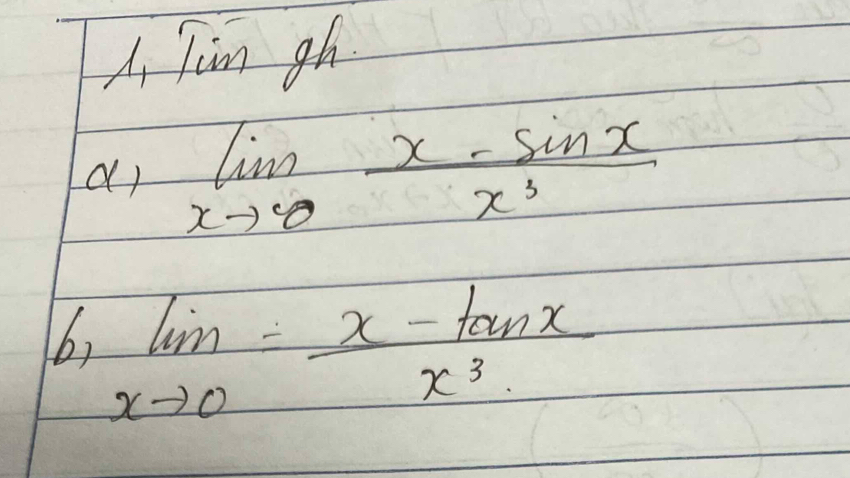 1, Tìm gh.
a, lim x→0 (x - sin x) / x³
b, lim x→0 = (x - tan x) / x³.